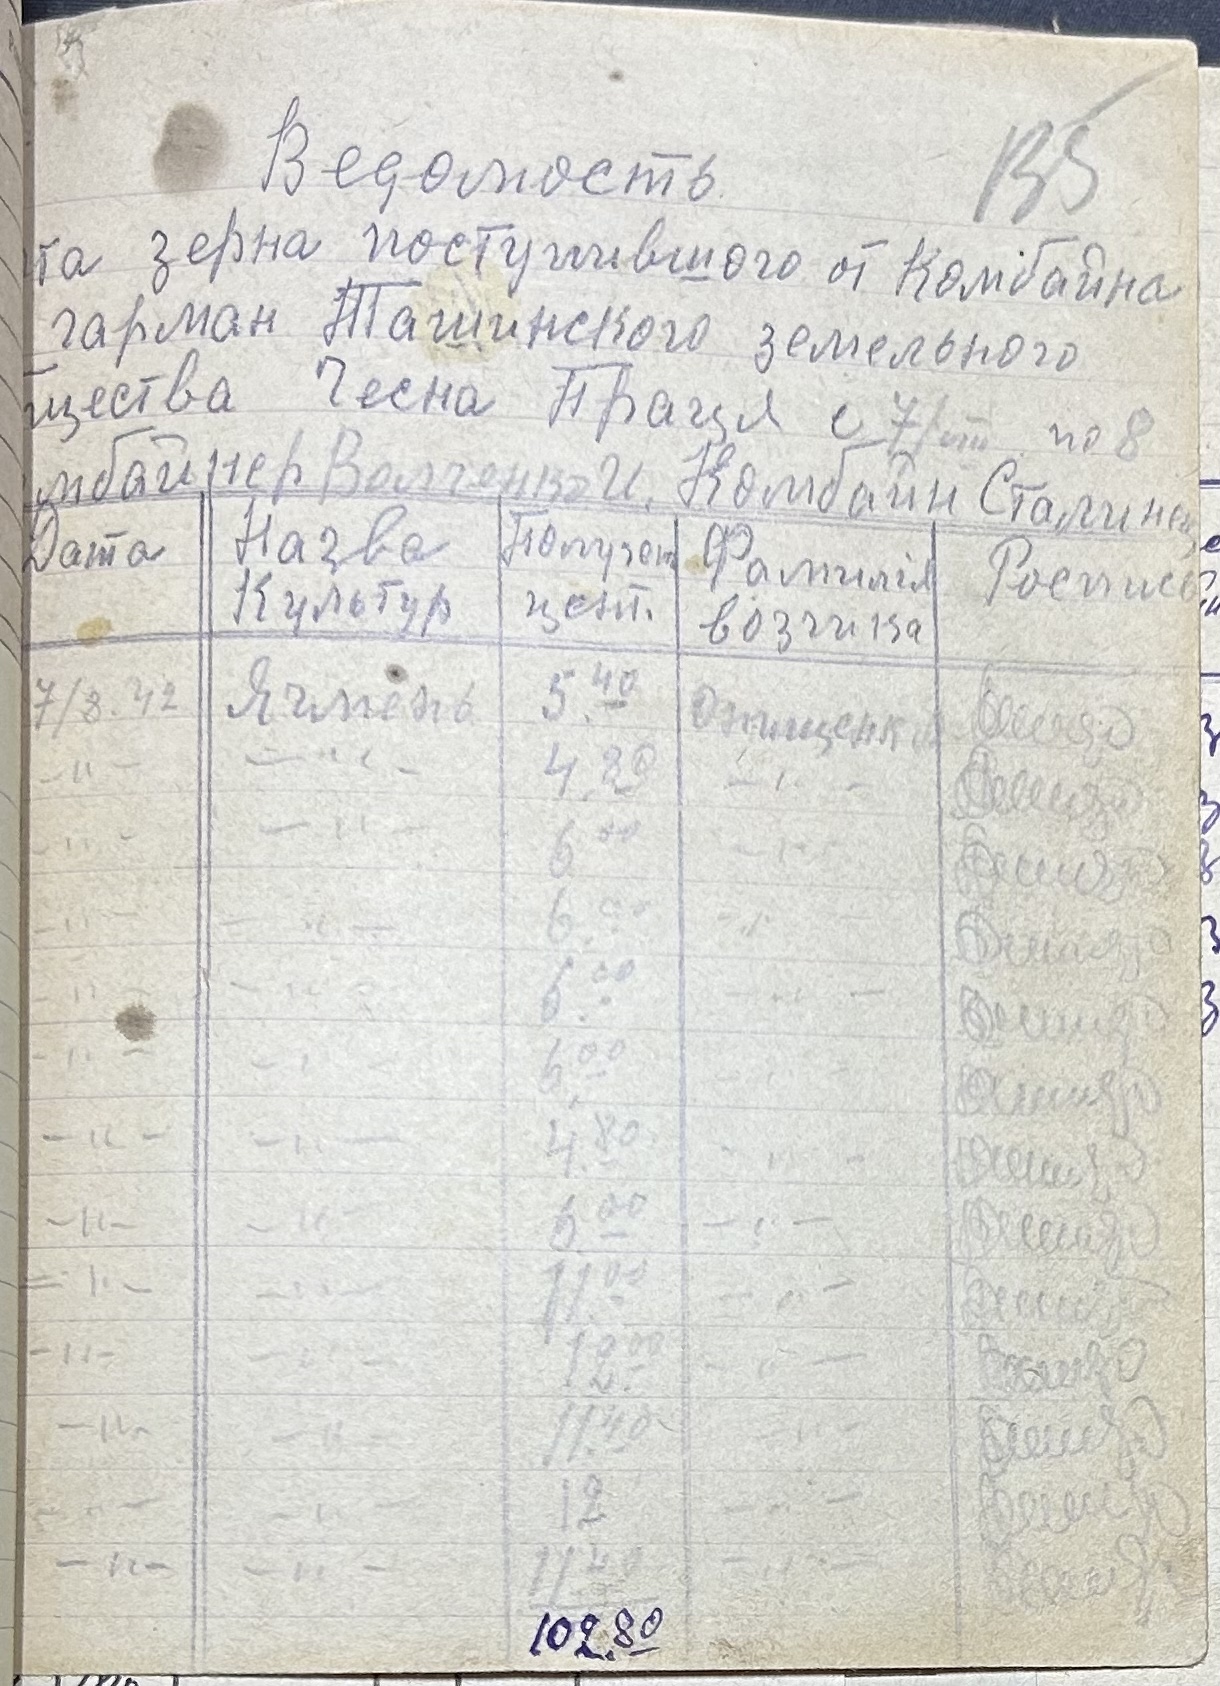 Ведомость
135
та зерна поступившого от Комбайна
гарман Ташинского земельного
щества Чесна Праця с 7/ по 8
мбайнер Волченко И. Комбайн Сталинец
Дата Назва Культур Получен цент. Фамилія возчика Роспись
7/8.42 Ячмень 5.40 Онищенко
-"- -"- 4.80 -"-
-"- -"- 6.00 -"-
-"- -"- 6.00 -"-
-"- -"- 6.00 -"-
-"- -"- 6.00 -"-
-"- -"- 4.80 -"-
-"- -"- 6.00 -"-
-"- -"- 11.00 -"-
-"- -"- 12.00 -"-
-"- -"- 11.40 -"-
-"- -"- 12 -"-
-"- -"- 11.40 -"-
102.80